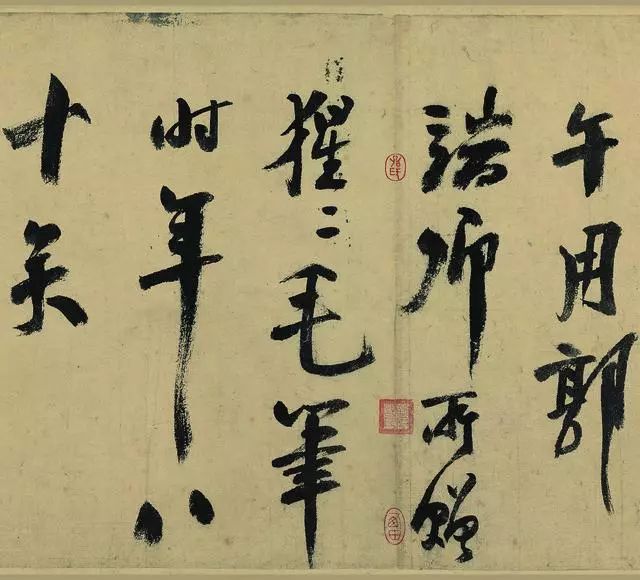 午用郭
端卿所贈
猩〻毛筆
时年八
十矣